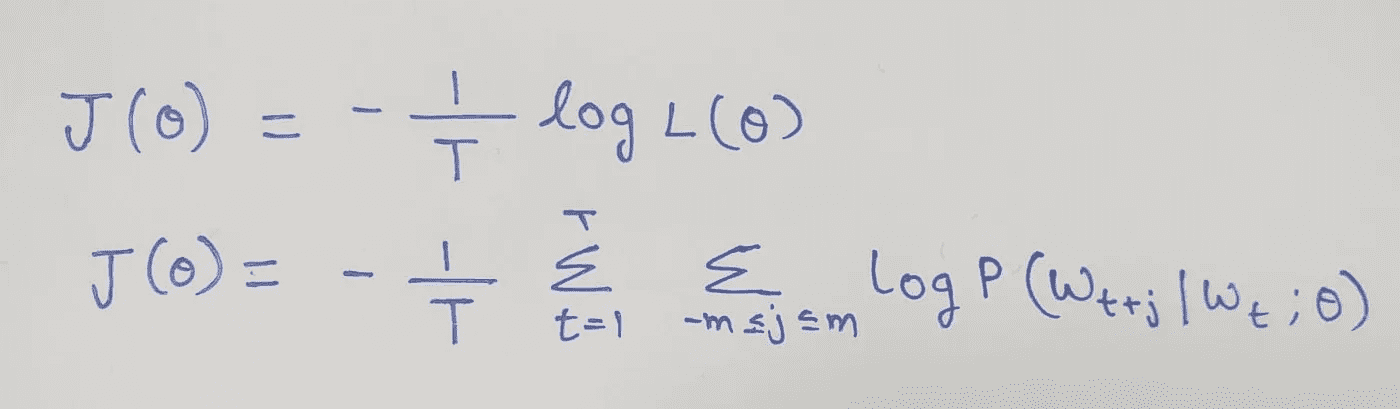 J(θ) = - 1/T log L(θ)
J(θ) = - 1/T Σ_{t=1}^{T} Σ_{-m≤j≤m} log P(W_{t+j} | W_t ; θ)